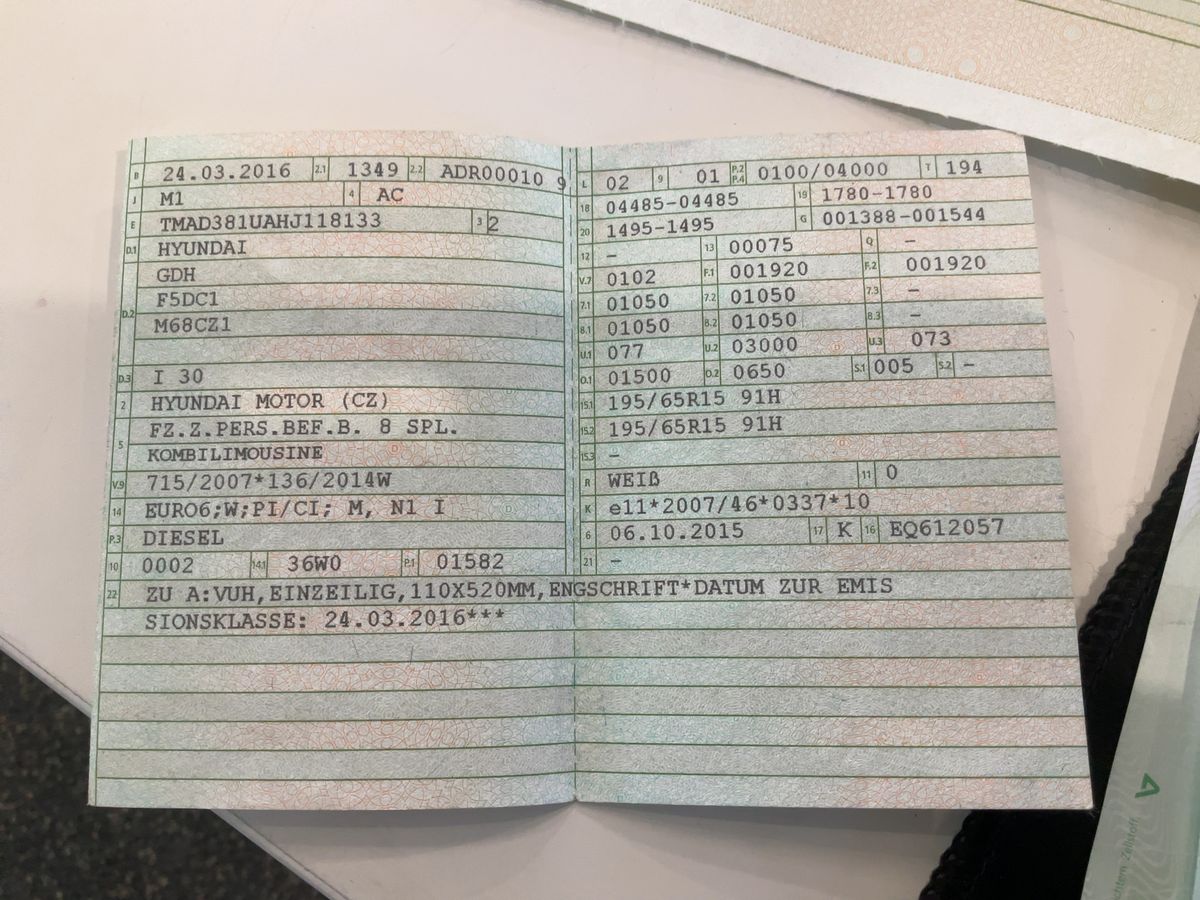 B 24.03.2016 2.1 1349 2.2 ADR00010 9
J M1 4 AC
E TMAD381UAHJ118133 3 2
D.1 HYUNDAI
GDH
D.2 F5DC1
M68CZ1
D.3 I 30
2 HYUNDAI MOTOR (CZ)
5 FZ.Z.PERS.BEF.B. 8 SPL.
KOMBILIMOUSINE
V.9 715/2007*136/2014W
14 EURO6;W;PI/CI; M, N1 I
P.3 DIESEL
10 0002 14.1 36W0 P.1 01582
L 02 9 01 P.2 P.4 0100/04000 T 194
18 04485-04485 19 1780-1780
20 1495-1495 G 001388-001544
12 – 13 00075 Q –
V.7 0102 F.1 001920 F.2 001920
7.1 01050 7.2 01050 7.3 –
8.1 01050 8.2 01050 8.3 –
U.1 077 U.2 03000 U.3 073
O.1 01500 O.2 0650 S.1 005 S.2 –
15.1 195/65R15 91H
15.2 195/65R15 91H
15.3 –
R WEIß 11 0
K e11*2007/46*0337*10
6 06.10.2015 17 K 16 EQ612057
21 –
22 ZU A:VUH,EINZEILIG,110X520MM,ENGSCHRIFT*DATUM ZUR EMIS
SIONSKLASSE: 24.03.2016***
Zellstoff